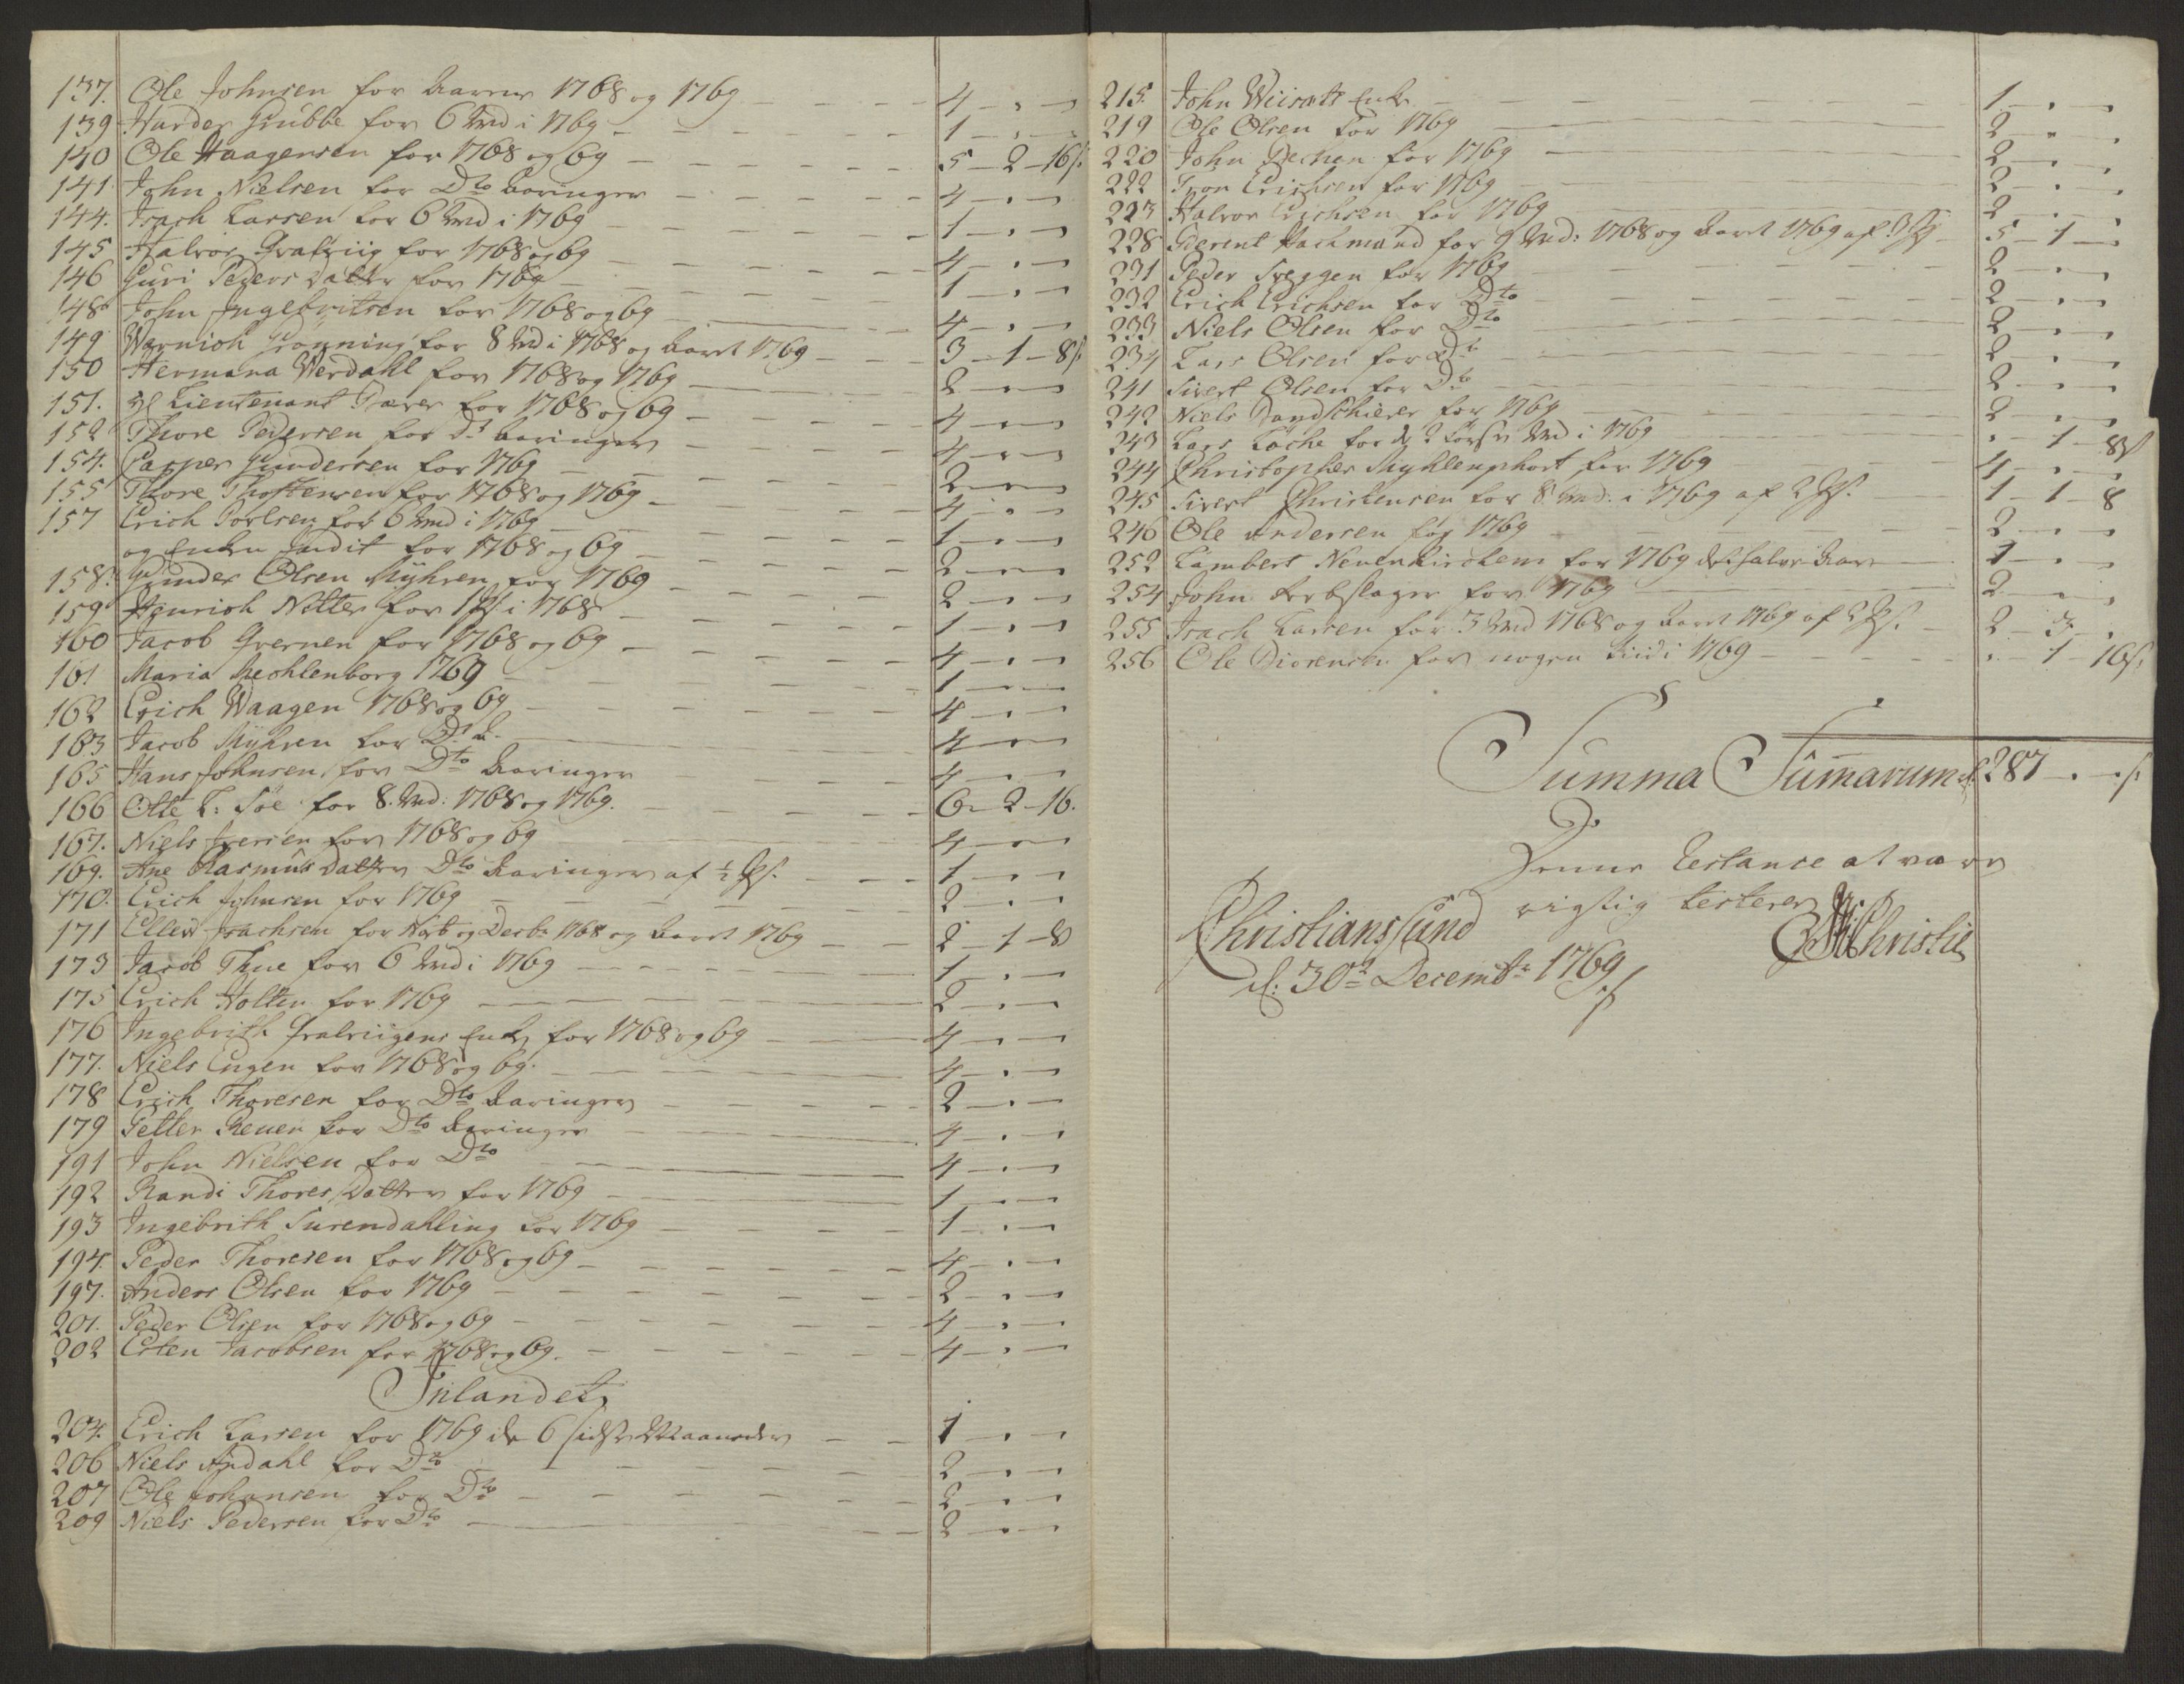 137. Ole Johnsen for Aarene 1768 og 1769 — 4 — . —
139 Harder Grubbe for 6 Md i 1769 — 1 — . —
140 Ole Haagensen for 1768 og 69 — 5 — 2 — 16 s.
141. John Nielsen for Dto Aaringer — 4 — . —
144. Isach Larsen for 6 Md i 1769 — 1 — . —
145 Halvor for 1768 og 69 — 4 — . —
146 Guri Peders Datter for 1769 — 1 — . —
148. John Ingebritsen for 1768 og 69 — 4 — . —
149. Wernich Grønning for 8 Md i 1768 og Aaret 1769 — 3 — 1 — 8 s.
150 Hermana Werdahl for 1768 og 1769 — 2 — . —
151. Hl Lieutenant for 1768 og 69 — 4 — . —
152 Thore Pedersen for Dt Aaringer — 4 — . —
154. Casper Gundersen for 1769 — 2 — . —
155 Thore Thostensen for 1768 og 1769 — 4 — . —
157 Erich Poelsen for 6 Md i 1769 — 1 — . —
og Enken Indit for 1768 og 69 — 2 — . —
158. Gunder Olsen Myhren for 1769 — 2 — . —
159 Henrich Notler for i 1768 — 1 — . —
160 Jacob Gvernen for 1768 og 69 — 4 — . —
161 Maria Mechlenborg 1769 — 1 — . —
162 Erich Waagen 1768 og 69 — 4 — . —
163 Jacob Myhren for Dt A. — 4 — . —
165 Hans Johnsen for Dto Aaringer — 4 — . —
166 Otte L: Søe for 8. Md: 1768 og 1769. — 6 — 2 — 16.
167. Niels Iversen for 1768 og 69 — 4 — . —
169. Ane Rasmus Datter Dto Aaringer af ½ — 1 — . —
170. Erich Johnsen for 1769 — 2 — . —
171 Ellev Isachsen for og Decbr 1768 og Aaret 1769 — 2 — 1 — 8
173 Jacob Thue for 6 Md i 1769 — 1 — . —
175 Erich Holten for 1769 — 2 — . —
176 Ingebrith Enke for 1768 og 69 — 4 — . —
177. Niels Engen for 1768 og 69. — 4 — . —
178 Erich Thoresen for Dto Aaringer — 2 — . —
179 Petter Reuer for Dto Aaringer — 4 — . —
191 John Nielsen for Dto — 4 — . —
192 Randi Thores Datter for 1769 — 1 — . —
193 Ingebrith Surendahling for 1769 — 1 — . —
194. Peder Thoresen for 1768 og 69 — 4 — . —
197. Anders Olsen for 1769 — 2 — . —
201. Peder Olsen for 1768 og 69 — 4 — . —
202 Esten Jacobsen for 1768 og 69. — 4 — . —
Inlandet
204. Erich Larsen for 1769 de 6 sidste Maaneder — 1 — . —
206 Niels Apdahl for Dto — 2 — . —
207 Ole Johansen for Dto — 2 — . —
209 Niels Pedersen for Dto — 2 — . —
215. John Enke — 1 — . —
219 Ole Olsen for 1769 — 2 — . —
220 John for 1769 — 2 — . —
222 Tron Erichsen for 1769 — 2 — . —
223 Halvor Erichsen for 1769 — 2 — . —
228 Hachmand for 9 Md: 1768 og Aaret 1769 af 3 — 5 — 1 —
231 Peder Sveggen for 1769 — 2 — . —
232 Erich Erichsen for Dto — 2 — . —
233 Niels Olsen for Dto — 2 — . —
234 Lars Olsen for Dto — 2 — . —
241 Sivert Olsen for Dto — 2 — . —
242 Niels for 1769 — 2 — . —
243 Lars Løche for de 2 første Md i 1769 — . — 1 — 8 s
244 Christopher Myhlenphort for 1769 — 4 — . —
245 Sivert Christensen for 8 Md: i 1769 af 2 — 1 — 1 — 8
246 Ole Andersen for 1769 — 2 — . —
252 Lambert Neuenkirchen for 1769 det halve Aar — 1 — . —
254 John Rebslager for 1769 — 2 — . —
255 Isach Larsen for 3 Md 1768 og Aaret 1769 af 2 — 2 — 3 — .
256 Ole for nogen Tiid i 1769 — . — 1 — 16 s.
Summa Sumarum 287 — . — s.
Denne Restance at være
rigtig testerer
Christianssund
d: 30te Decembr 1769
Christie